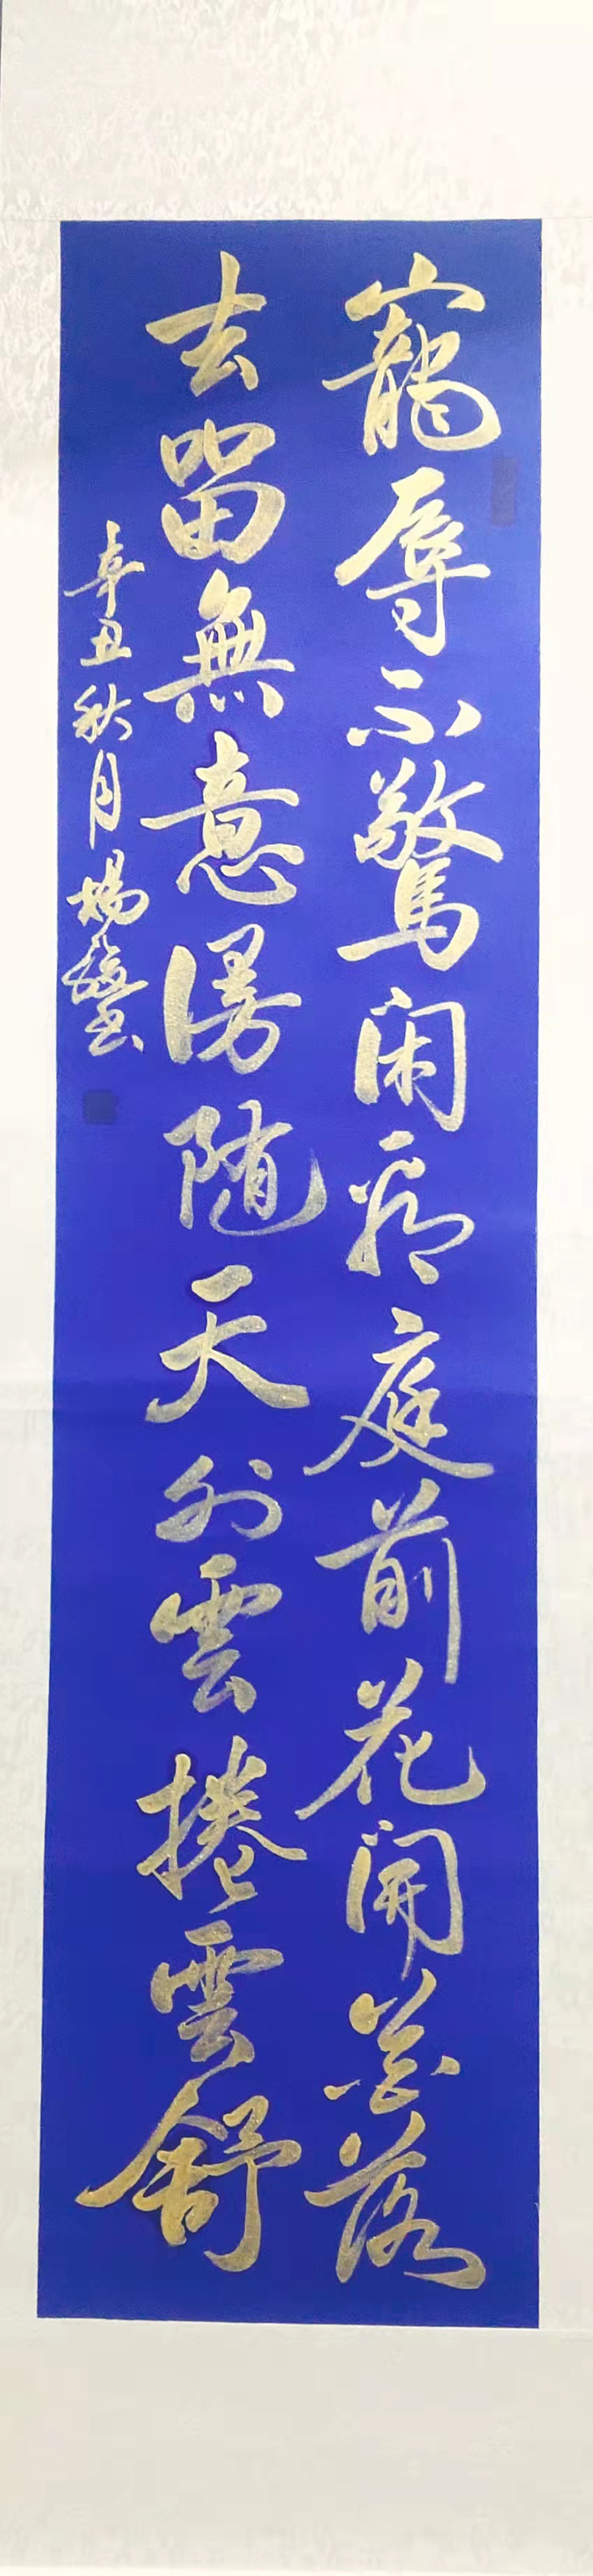 寵辱不驚闲看庭前花開花落
去留無意漫随天外雲捲雲舒
辛丑秋月楊